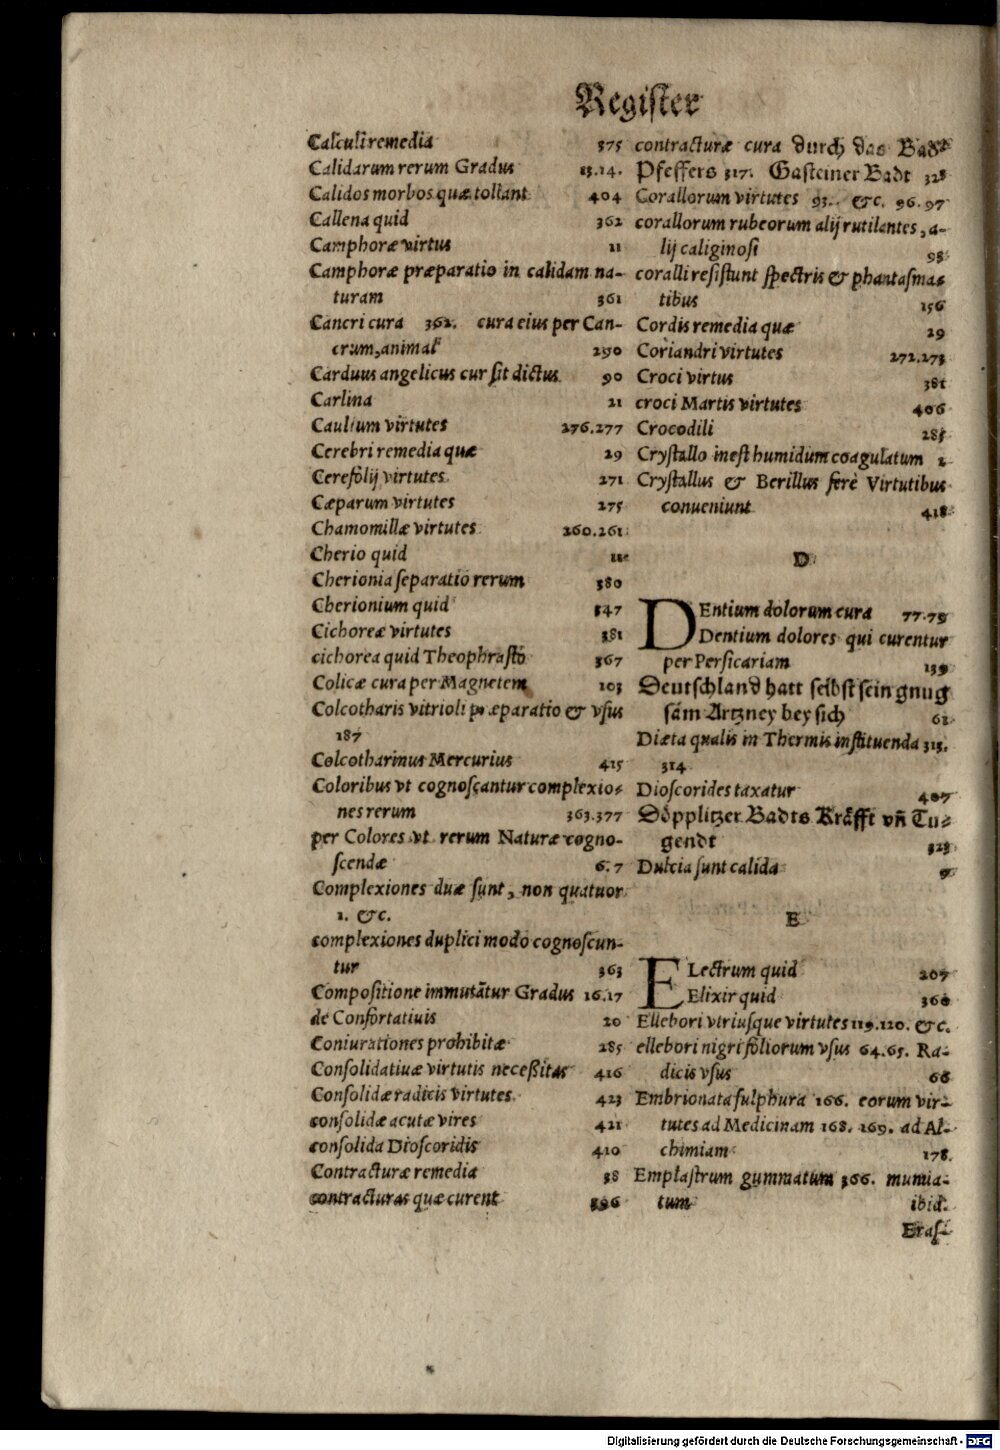 Register
Calculi remedia 375
Calidarum rerum Gradus 13.14.
Calidos morbos quæ tollant 404
Callena quid 362
Camphoræ virtus 11
Camphoræ præparatio in calidam na-
turam 361
Cancri cura 362. cura eius per Can-
crum, animal 290
Carduus angelicus cur sit dictus 90
Carlina 21
Caulium virtutes 276.277
Cerebri remedia quæ 29
Cerefolij virtutes 271
Cæparum virtutes 275
Chamomillæ virtutes 260.261
Cherio quid 11
Cherionia separatio rerum 380
Cherionium quid 347
Cichoreæ virtutes 381
cichorea quid Theophrasto 367
Colicæ cura per Magnetem 103
Colcotharis vitrioli præparatio & vsus
187
Colcotharinus Mercurius 415
Coloribus vt cognoscantur complexio-
nes rerum 363.377
per Colores vt rerum Naturæ cogno-
scendæ 6.7
Complexiones duæ sunt, non quatuor
1. &c.
complexiones duplici modo cognoscun-
tur 363
Compositione immutātur Gradus 16.17
de Confortatiuis 20
Coniurationes prohibitæ 285
Consolidatiuæ virtutis necessitas 416
Consolidæ radicis virtutes 423
consolidæ acutæ vires 421
consolida Dioscoridis 410
Contracturæ remedia 38
contracturas quæ curent 396
contracturæ cura durch das Badt
Pfeffers 317. Gasteiner Badt 328
Corallorum virtutes 93. &c. 96.97
corallorum rubeorum alij rutilantes, a-
lij caliginosi 95
coralli resistunt spectris & phantasma-
tibus 156
Cordis remedia quæ 29
Coriandri virtutes 272.273
Croci virtus 381
croci Martis virtutes 406
Crocodili 285
Crystallo inest humidum coagulatum 2
Crystallus & Berillus ferè Virtutibus
conueniunt 418
D
DEntium dolorum cura 77.79
Dentium dolores qui curentur
per Persicariam 139
Deutschland hatt selbst sein gnug
sam Artzney bey sich 62
Diæta qualis in Thermis instituenda 313.
314
Dioscorides taxatur 407
Döpplitzer Badts Kräfft vñ Tu-
gendt 323
Dulcia sunt calida 9
E
ELectrum quid 207
Elixir quid 360
Ellebori vtriusque virtutes 119.120. &c.
ellebori nigri foliorum vsus 64.65. Ra-
dicis vsus 66
Embrionata sulphura 166. eorum vir-
tutes ad Medicinam 168. 169. ad Al-
chimiam 178.
Emplastrum gummatum 366. mumia-
tum ibid.
Eras-
Digitalisierung gefördert durch die Deutsche Forschungsgemeinschaft - DFG